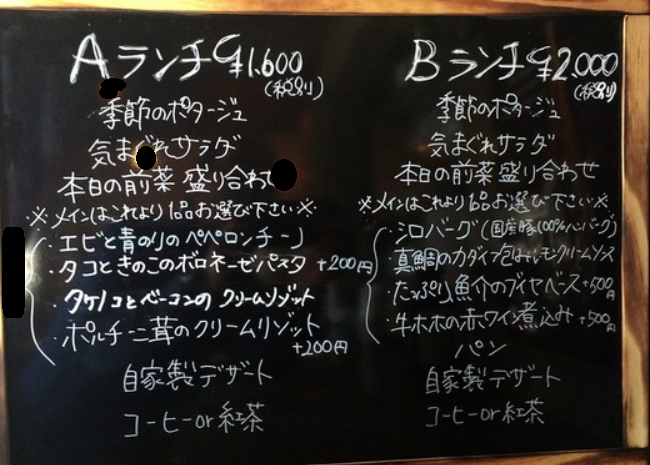 Aランチ ¥1.600
(税別)
季節のポタージュ
気まぐれサラダ
本日の前菜 盛り合わせ
※メインはこれより1品お選び下さい※
・エビと青のりのペペロンチーノ
・タコときのこのボロネーゼパスタ +200円
・タケノコとベーコンの クリームリゾット
・ポルチーニ茸のクリームリゾット
+200円
自家製デザート
コーヒーor紅茶
Bランチ ¥2.000
(税別)
季節のポタージュ
気まぐれサラダ
本日の前菜 盛り合わせ
※メインはこれより1品お選び下さい※
・シロバーグ(国産豚100%ハンバーグ)
・真鯛のカダイフ包みレモンクリームソース
・たっぷり魚介のブイヤベース+500円
・牛ホホの赤ワイン煮込み+500円
パン
自家製デザート
コーヒーor紅茶